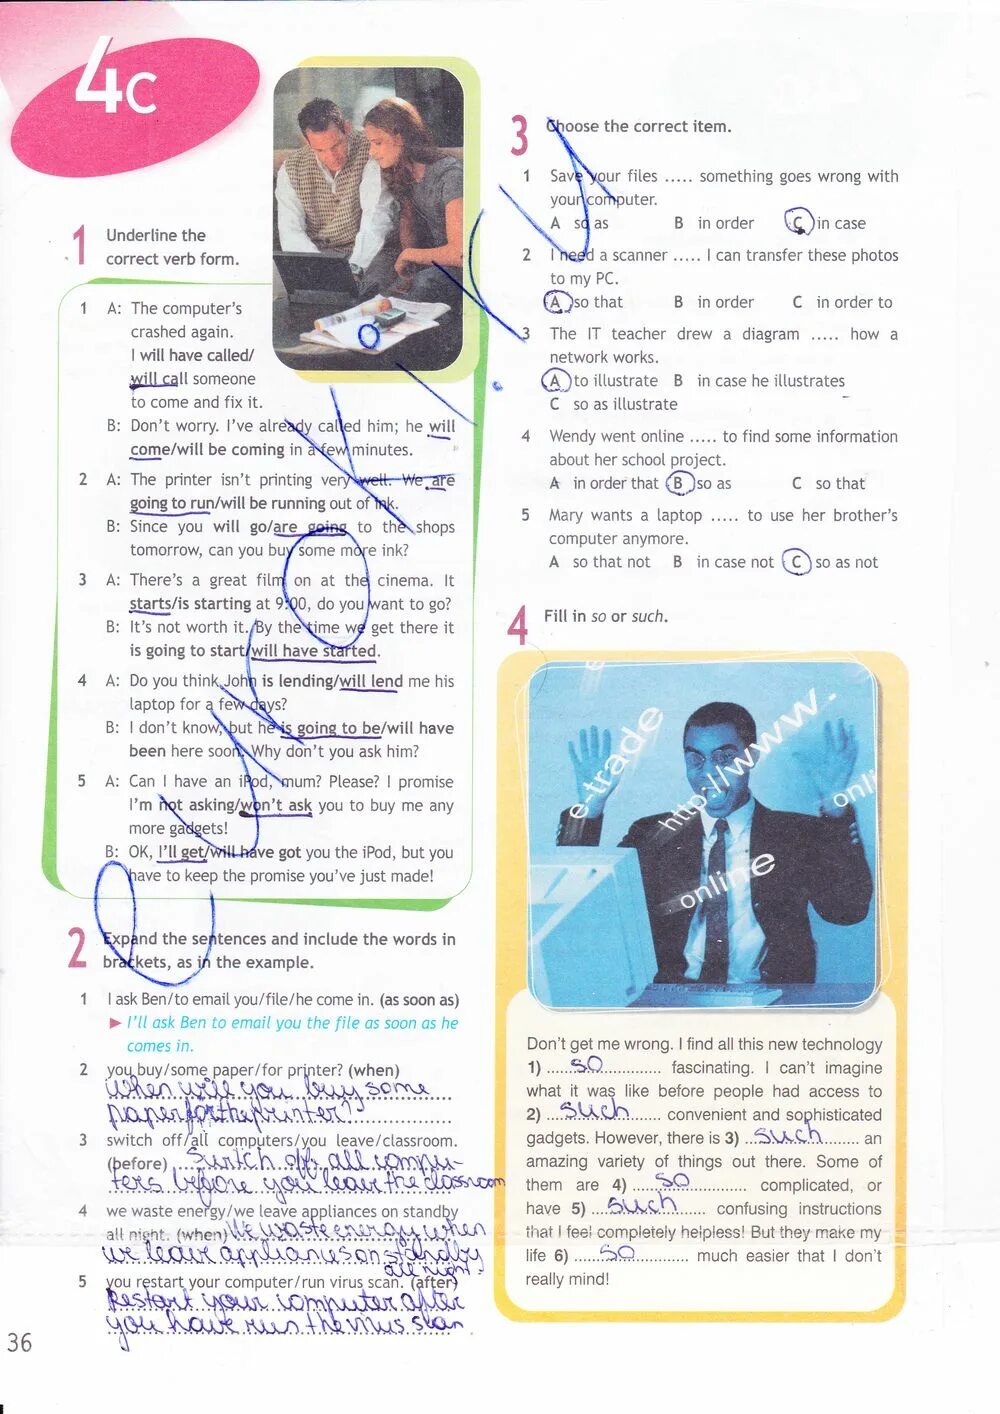 4c
1 Underline the
correct verb form.
1 A: The computer's
crashed again.
I will have called/
will call someone
to come and fix it.
B: Don't worry. I've already called him; he will
come/will be coming in a few minutes.
2 A: The printer isn't printing very well. We are
going to run/will be running out of ink.
B: Since you will go/are going to the shops
tomorrow, can you buy some more ink?
3 A: There's a great film on at the cinema. It
starts/is starting at 9:00, do you want to go?
B: It's not worth it. By the time we get there it
is going to start/will have started.
4 A: Do you think John is lending/will lend me his
laptop for a few days?
B: I don't know, but he is going to be/will have
been here soon. Why don't you ask him?
5 A: Can I have an iPod, mum? Please? I promise
I'm not asking/won't ask you to buy me any
more gadgets!
B: OK, I'll get/will have got you the iPod, but you
have to keep the promise you've just made!
2 Expand the sentences and include the words in
brackets, as in the example.
1 I ask Ben/to email you/file/he come in. (as soon as)
► I'll ask Ben to email you the file as soon as he
comes in.
2 you buy/some paper/for printer? (when)
When will you buy some
paper for the printer?
3 switch off/all computers/you leave/classroom.
(before) Switch off all compu-
ters before you leave the classroom
4 we waste energy/we leave appliances on standby
all night. (when) We waste energy when
we leave appliances on standby
all night.
5 you restart your computer/run virus scan. (after)
Restart your computer after
you have run the virus scan
36
3 Choose the correct item.
1 Save your files ..... something goes wrong with
your computer.
A so as B in order C in case
2 I need a scanner ..... I can transfer these photos
to my PC.
A so that B in order C in order to
3 The IT teacher drew a diagram ..... how a
network works.
A to illustrate B in case he illustrates
C so as illustrate
4 Wendy went online ..... to find some information
about her school project.
A in order that B so as C so that
5 Mary wants a laptop ..... to use her brother's
computer anymore.
A so that not B in case not C so as not
4 Fill in so or such.
e-trade
http://www.
online
online
Don't get me wrong. I find all this new technology
1) so fascinating. I can't imagine
what it was like before people had access to
2) such convenient and sophisticated
gadgets. However, there is 3) such an
amazing variety of things out there. Some of
them are 4) so complicated, or
have 5) such confusing instructions
that I feel completely helpless! But they make my
life 6) so much easier that I don't
really mind!